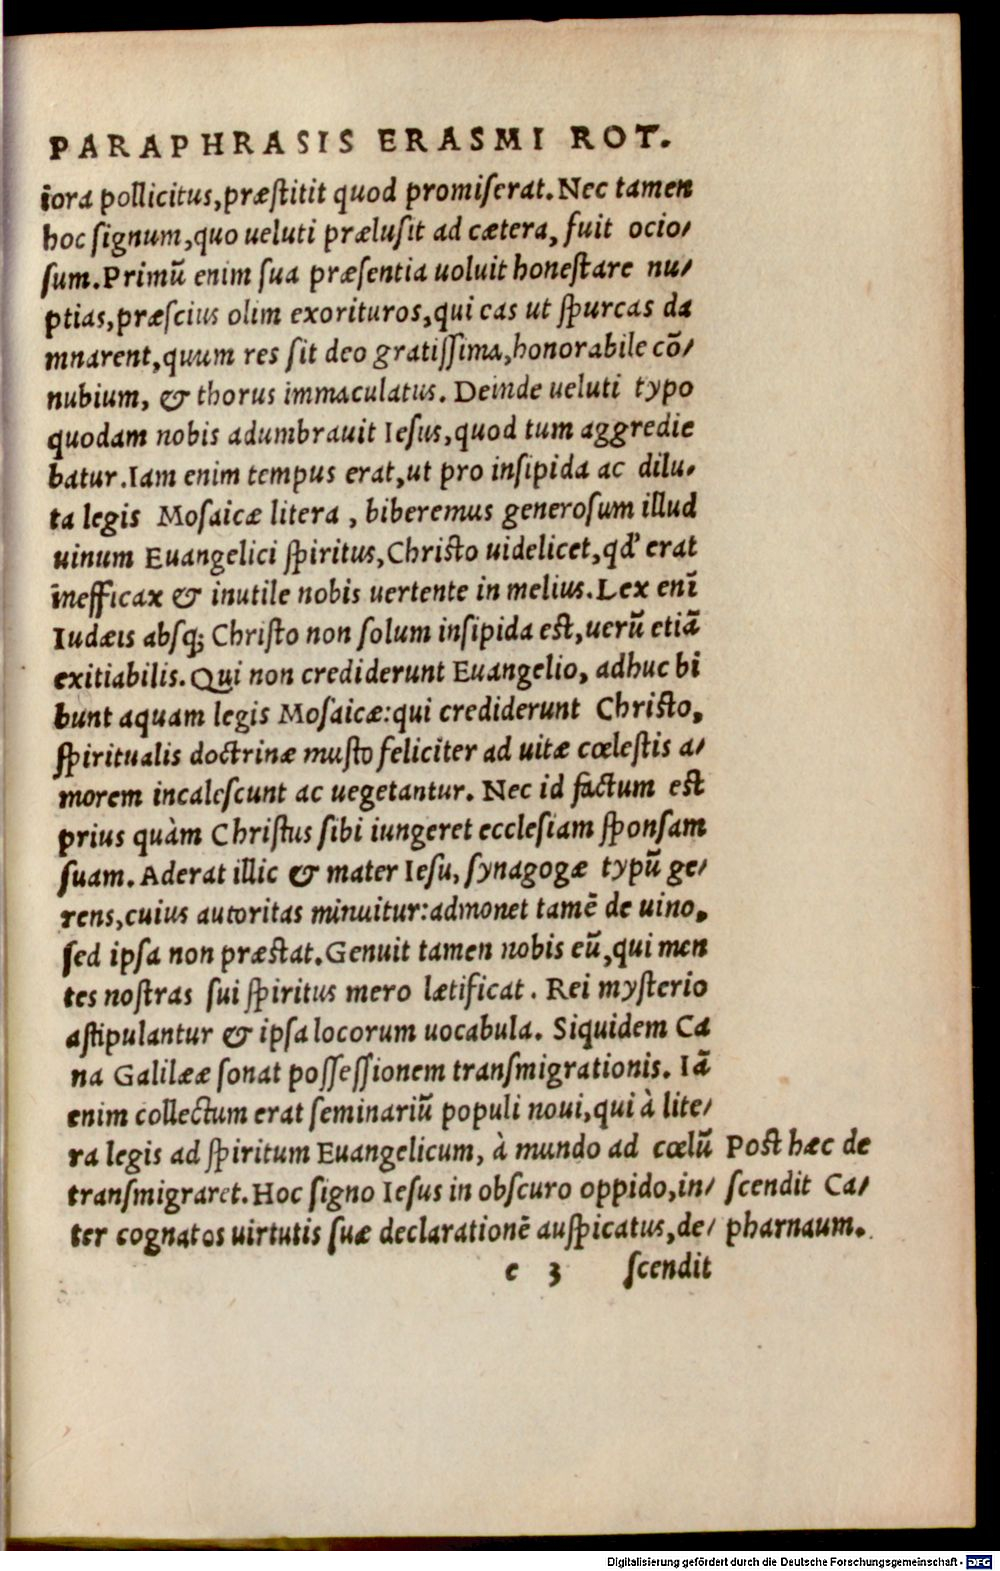 PARAPHRASIS ERASMI ROT.
iora pollicitus, præstitit quod promiserat. Nec tamen
hoc signum, quo ueluti prælusit ad cætera, fuit ocio/
sum. Primũ enim sua præsentia uoluit honestare nu/
ptias, præscius olim exorituros, qui eas ut spurcas da
mnarent, quum res sit deo gratissima, honorabile cõ/
nubium, & thorus immaculatus. Deinde ueluti typo
quodam nobis adumbrauit Iesus, quod tum aggredie
batur. Iam enim tempus erat, ut pro insipida ac dilu/
ta legis Mosaicæ litera, biberemus generosum illud
uinum Euangelici spiritus, Christo uidelicet, qd' erat
inefficax & inutile nobis uertente in melius. Lex enĩ
Iudæis absq; Christo non solum insipida est, uerũ etiã
exitiabilis. Qui non crediderunt Euangelio, adhuc bi
bunt aquam legis Mosaicæ: qui crediderunt Christo,
spiritualis doctrinæ musto feliciter ad uitæ cœlestis a/
morem incalescunt ac uegetantur. Nec id factum est
prius quàm Christus sibi iungeret ecclesiam sponsam
suam. Aderat illic & mater Iesu, synagogæ typũ ge/
rens, cuius autoritas minuitur: admonet tamẽ de uino,
sed ipsa non præstat. Genuit tamen nobis eũ, qui men
tes nostras sui spiritus mero lætificat. Rei mysterio
astipulantur & ipsa locorum uocabula. Siquidem Ca
na Galilææ sonat possessionem transmigrationis. Iã
enim collectum erat seminariũ populi noui, qui à lite/
ra legis ad spiritum Euangelicum, à mundo ad cœlũ
transmigraret. Hoc signo Iesus in obscuro oppido, in/
ter cognatos uirtutis suæ declarationẽ auspicatus, de/
Post hæc de
scendit Ca/
pharnaum.
e 3 scendit
Digitalisierung gefördert durch die Deutsche Forschungsgemeinschaft - DFG